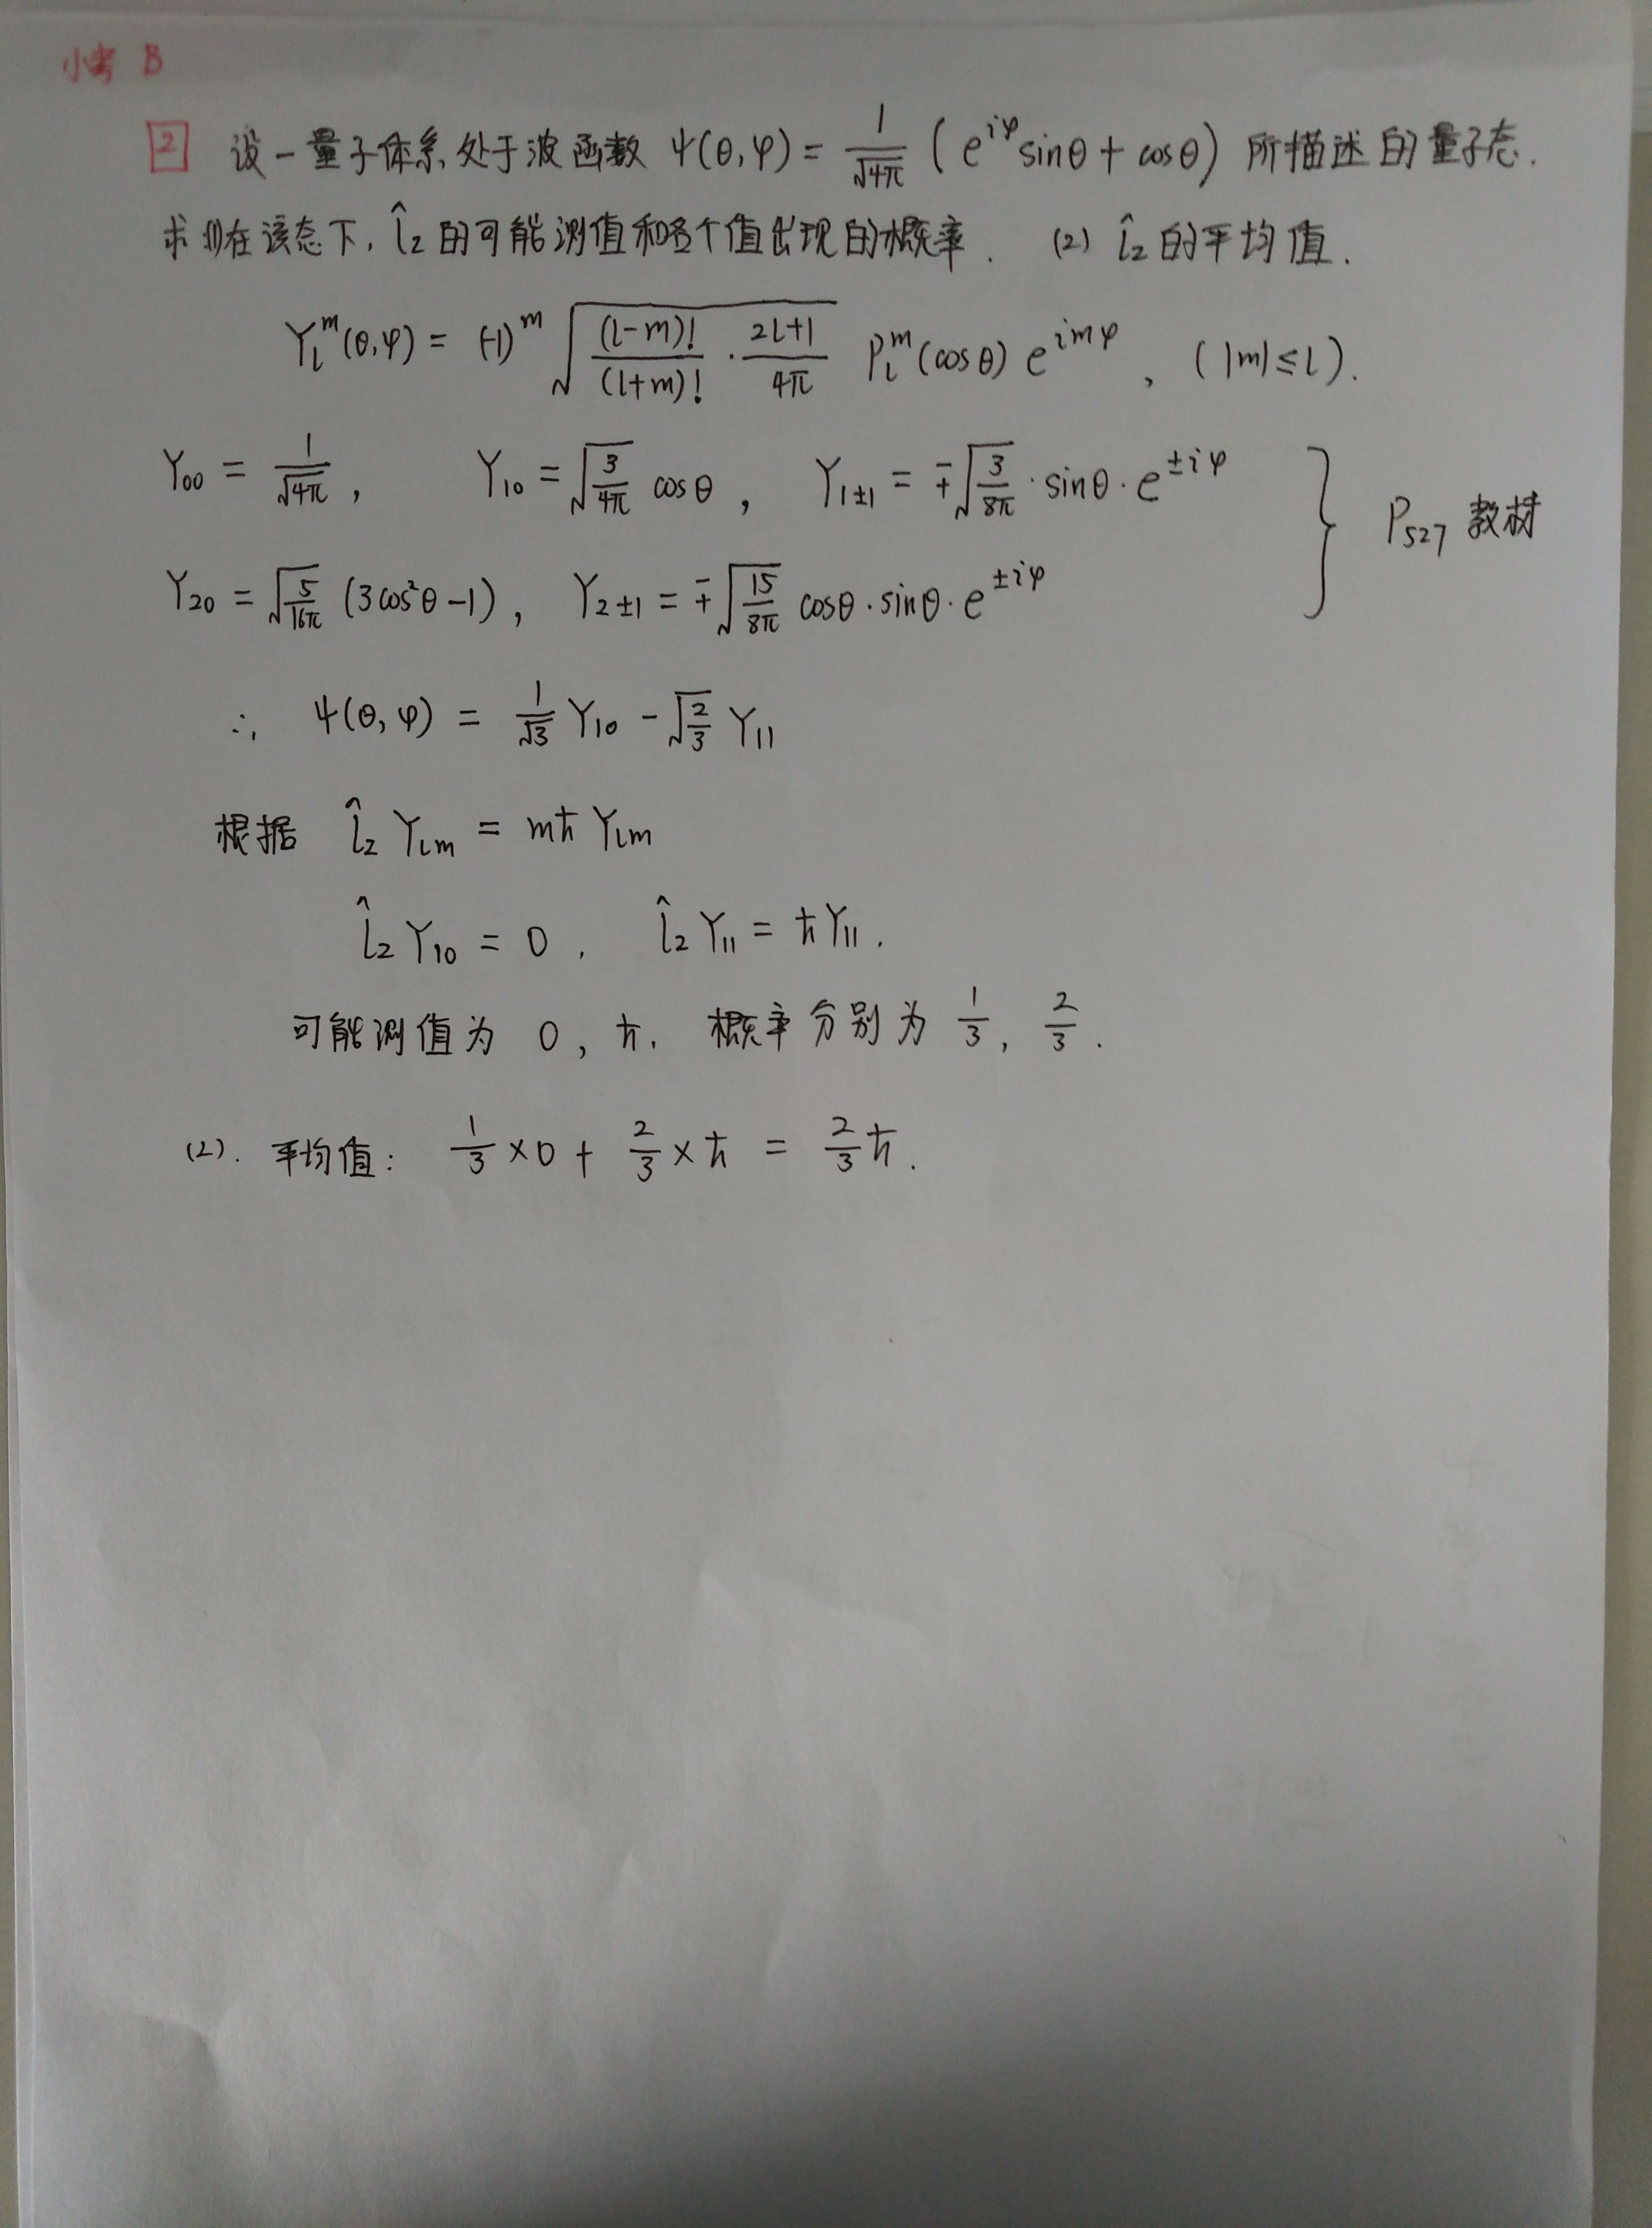 小考 B
2 设一量子体系处于波函数 ψ(θ,φ) = 1/√4π (e^{iφ} sinθ + cosθ) 所描述的量子态.
求 (1) 在该态下, l̂z 的可能测值和各个值出现的概率. (2) l̂z 的平均值.
Y_l^m(θ,φ) = (-1)^m √((l-m)!/(l+m)! · (2l+1)/4π) P_l^m(cosθ) e^{imφ}, (|m|≤l).
Y₀₀ = 1/√4π, Y₁₀ = √(3/4π) cosθ, Y₁±₁ = ∓√(3/8π) · sinθ · e^{±iφ}
P₅₂₇ 教材
Y₂₀ = √(5/16π) (3cos²θ-1), Y₂±₁ = ∓√(15/8π) cosθ·sinθ·e^{±iφ}
∴ ψ(θ,φ) = 1/√3 Y₁₀ - √(2/3) Y₁₁
根据 l̂z Y_lm = mħ Y_lm
l̂z Y₁₀ = 0, l̂z Y₁₁ = ħY₁₁.
可能测值为 0, ħ, 概率分别为 1/3, 2/3.
(2). 平均值: 1/3×0 + 2/3×ħ = 2/3 ħ.